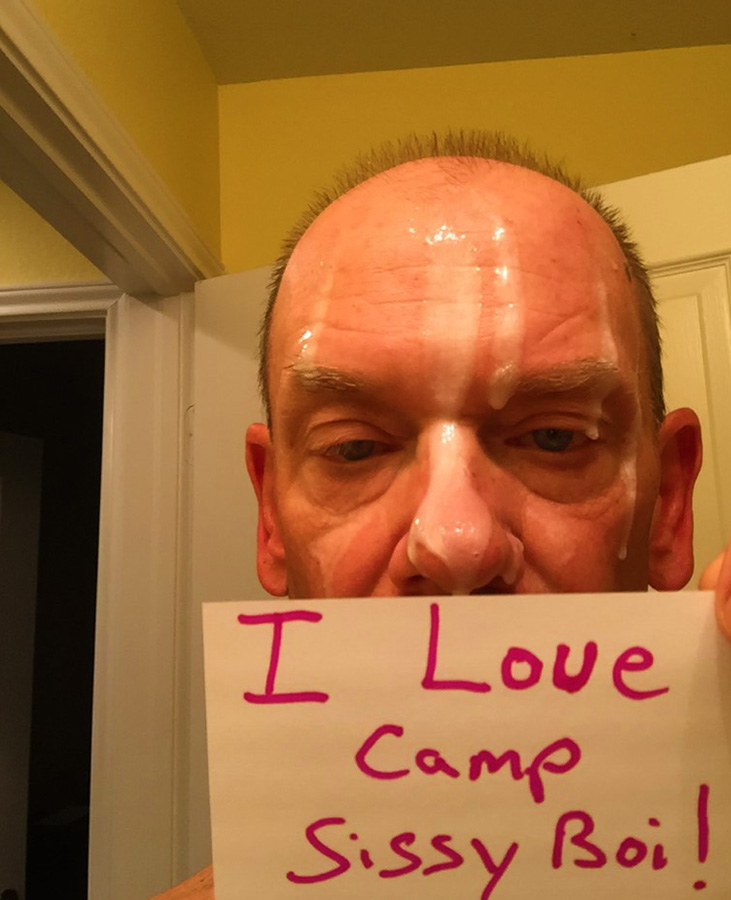 I Love
Camp
Sissy Boi!